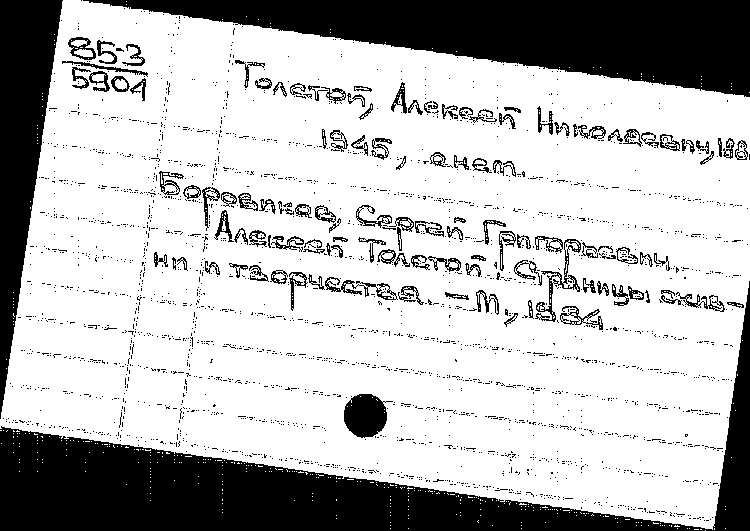 85-3
5904
Толстой, Алексей Николаевич, 188
1945, о нем.
Боровиков, Сергей Григорьевич.
Алексей Толстой: Страницы жиз-
ни и творчества. — М., 1984.